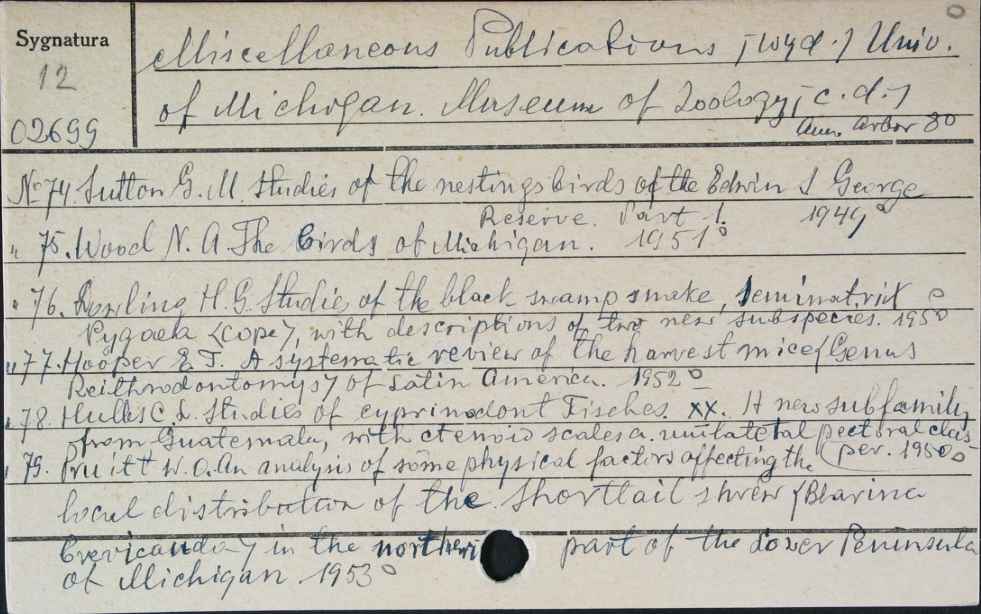 Sygnatura
12
02699
Miscellaneous Publications [wyd.] Univ.
of Michigan. Museum of Zoology [c.d.]
Ann. Arbor 80
No 74. Sutton G. M. Studies of the nestings birds of the Edwin S George
Reserve. Part I. 1949
" 75. Wood N. A. The Birds of Michigan. 1951
" 76. Dowling H. G. Studie of the black swamp snake, Seminatrix
Pygaea <cope>, with descriptions of two new subspecies. 1950
" 77. Hooper E. T. A systematic review of the harvest mice (Genus
Reithrodontomys) of Latin America. 1952
" 78. Hubbs C L. Studies of cyprinodont Fisches. XX. A new subfamily
from Guatemala, with ctenoid scales a. unilateral pectoral clas
per. 1950
" 79. Pruitt W. O. An analysis of some physical factors affecting the
local distribution of the shorttail shrew (Blarina
brevicauda) in the northern part of the Lower Peninsula
of Michigan 1953